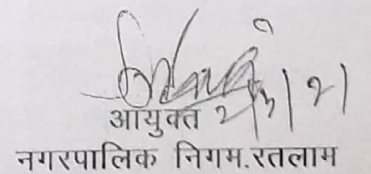 आयुक्त
नगरपालिक निगम.रतलाम